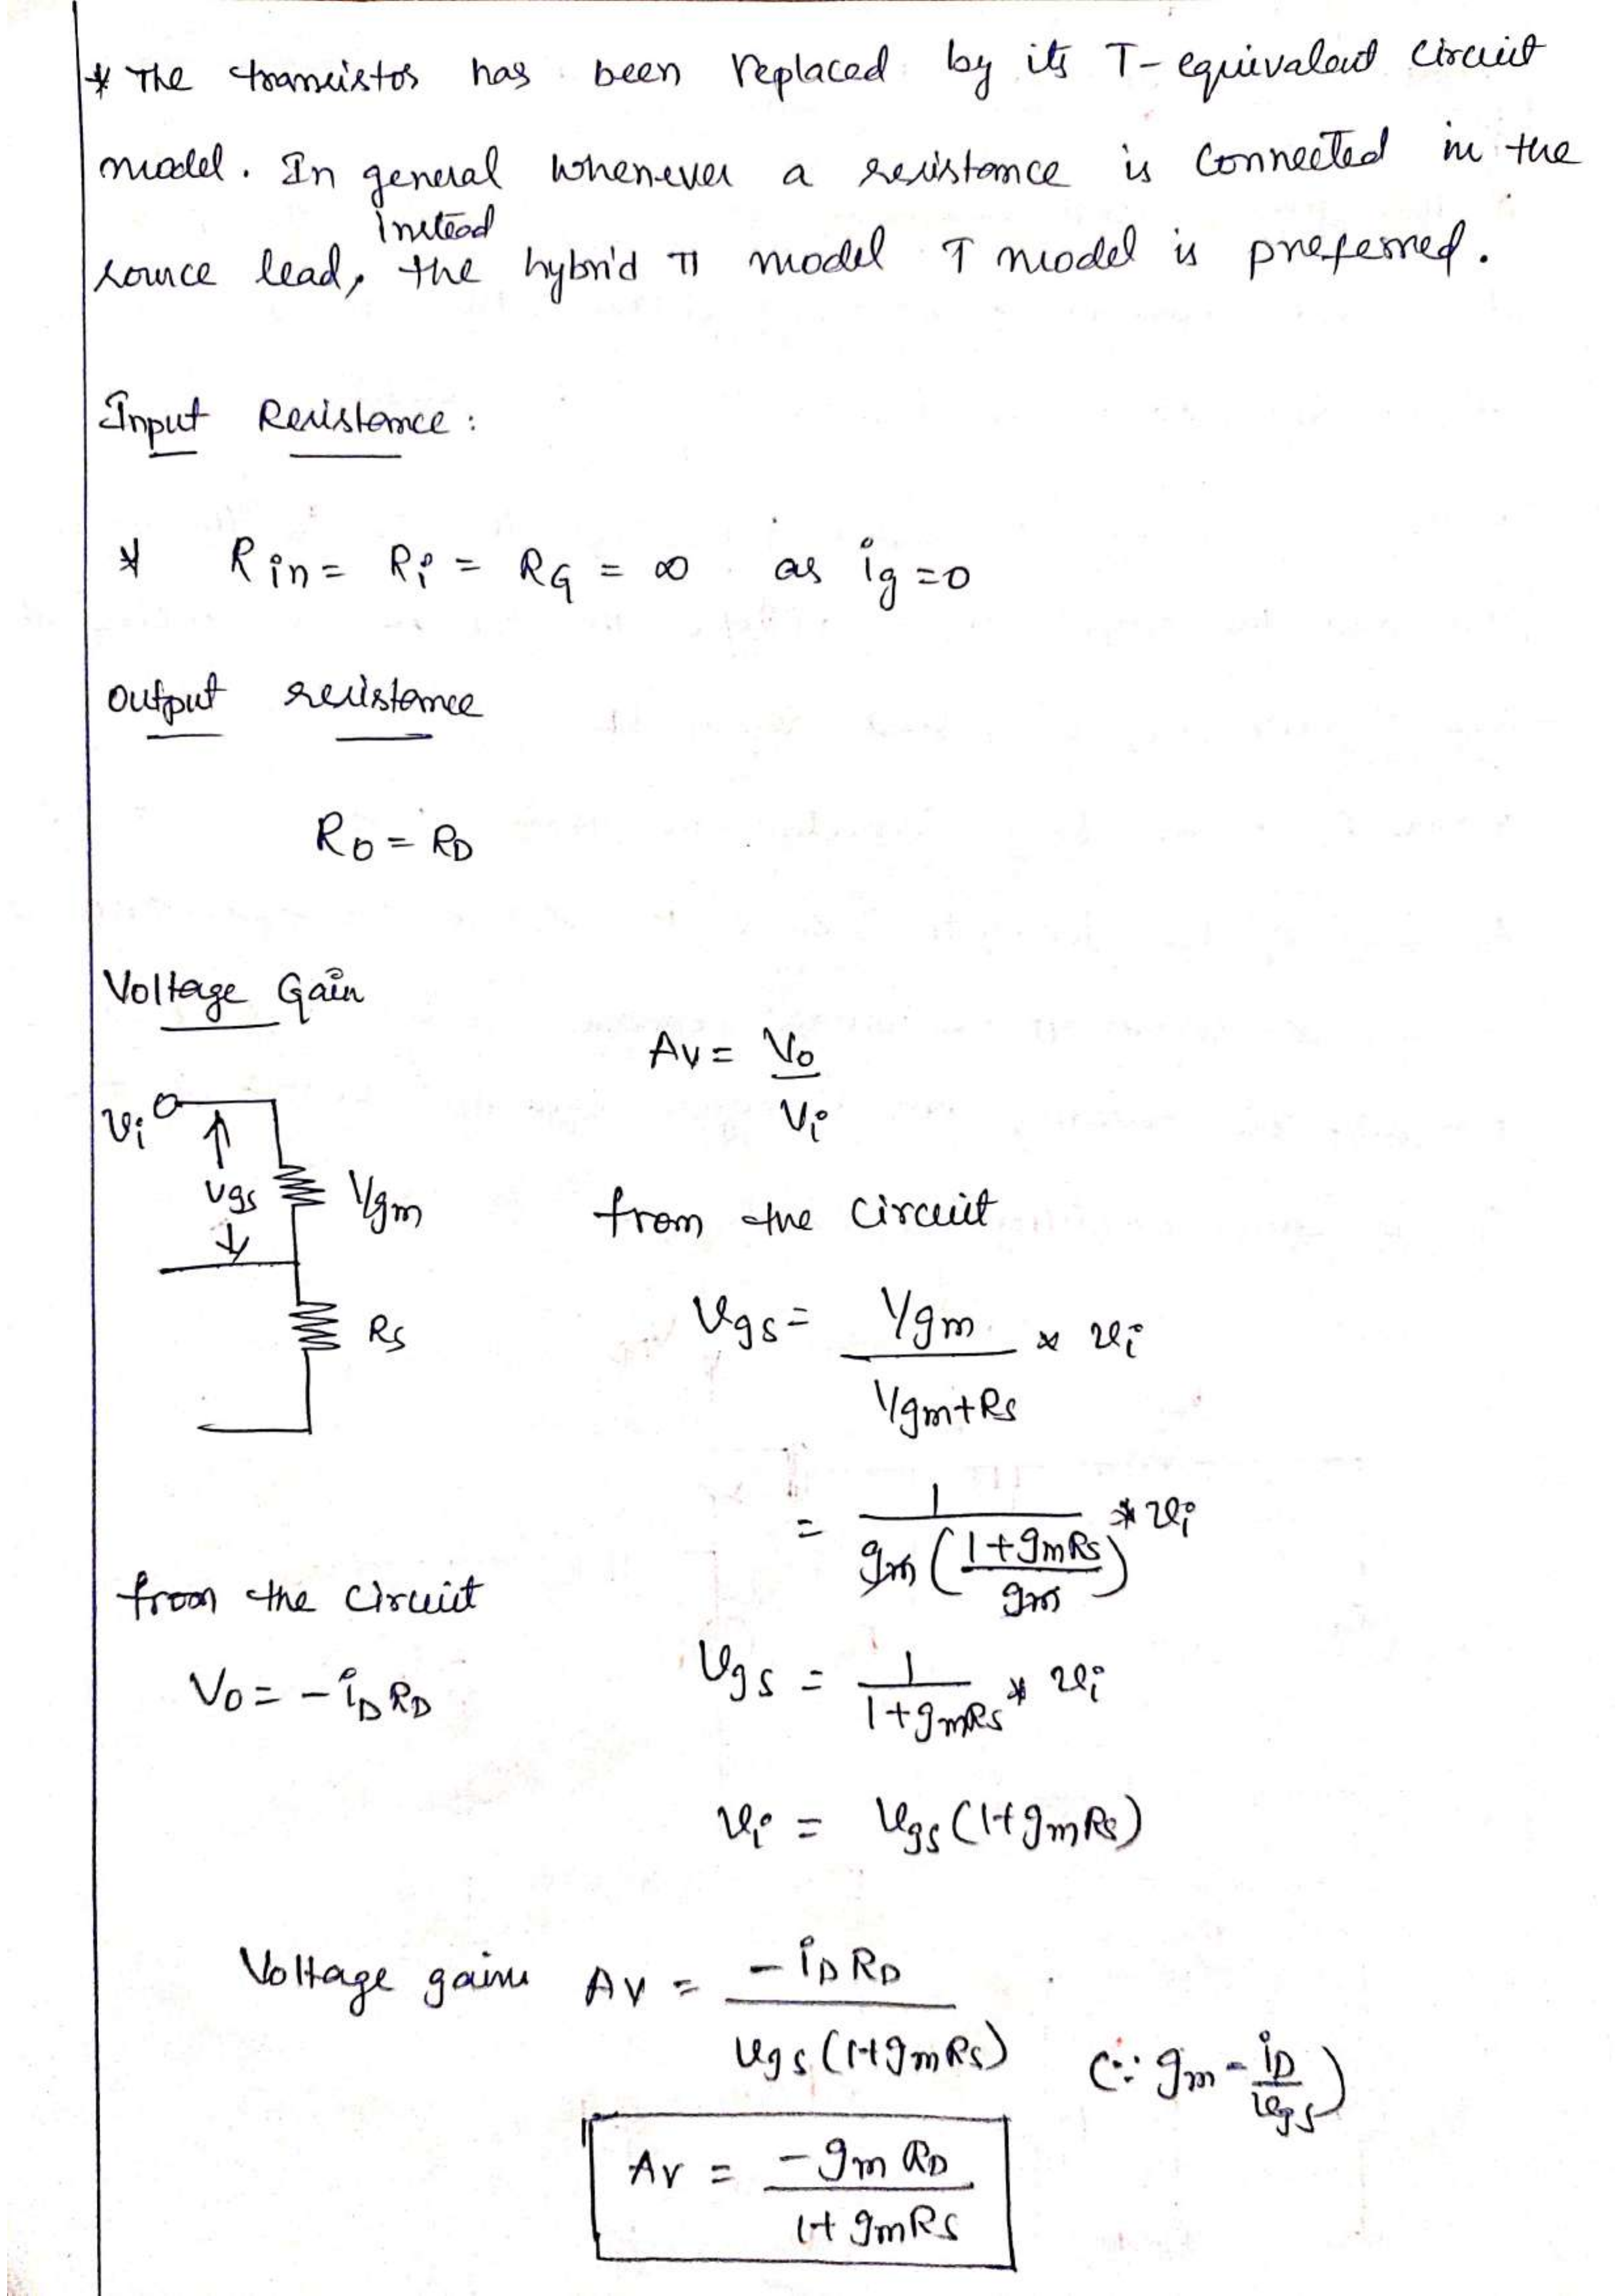 * The transistor has been replaced by its T- equivalent circuit
model. In general whenever a resistance is connected in the
instead
source lead, the hybrid π model T model is preferred.
Input Resistance:
* Rin = Ri = RG = ∞ as ig = 0
output resistance
Ro = RD
Voltage Gain
Av = Vo/Vi
vi
vgs 1/gm
from the circuit
Rs
vgs = (1/gm)/(1/gm+Rs) * vi
= 1/(gm((1+gmRs)/gm)) * vi
from the circuit
Vo = -iD RD
vgs = 1/(1+gmRs) * vi
vi = vgs (1+gmRs)
Voltage gain Av = -iD RD/(vgs (1+gmRs)) (∵ gm = iD/vgs)
Av = -gm RD/(1+gmRs)